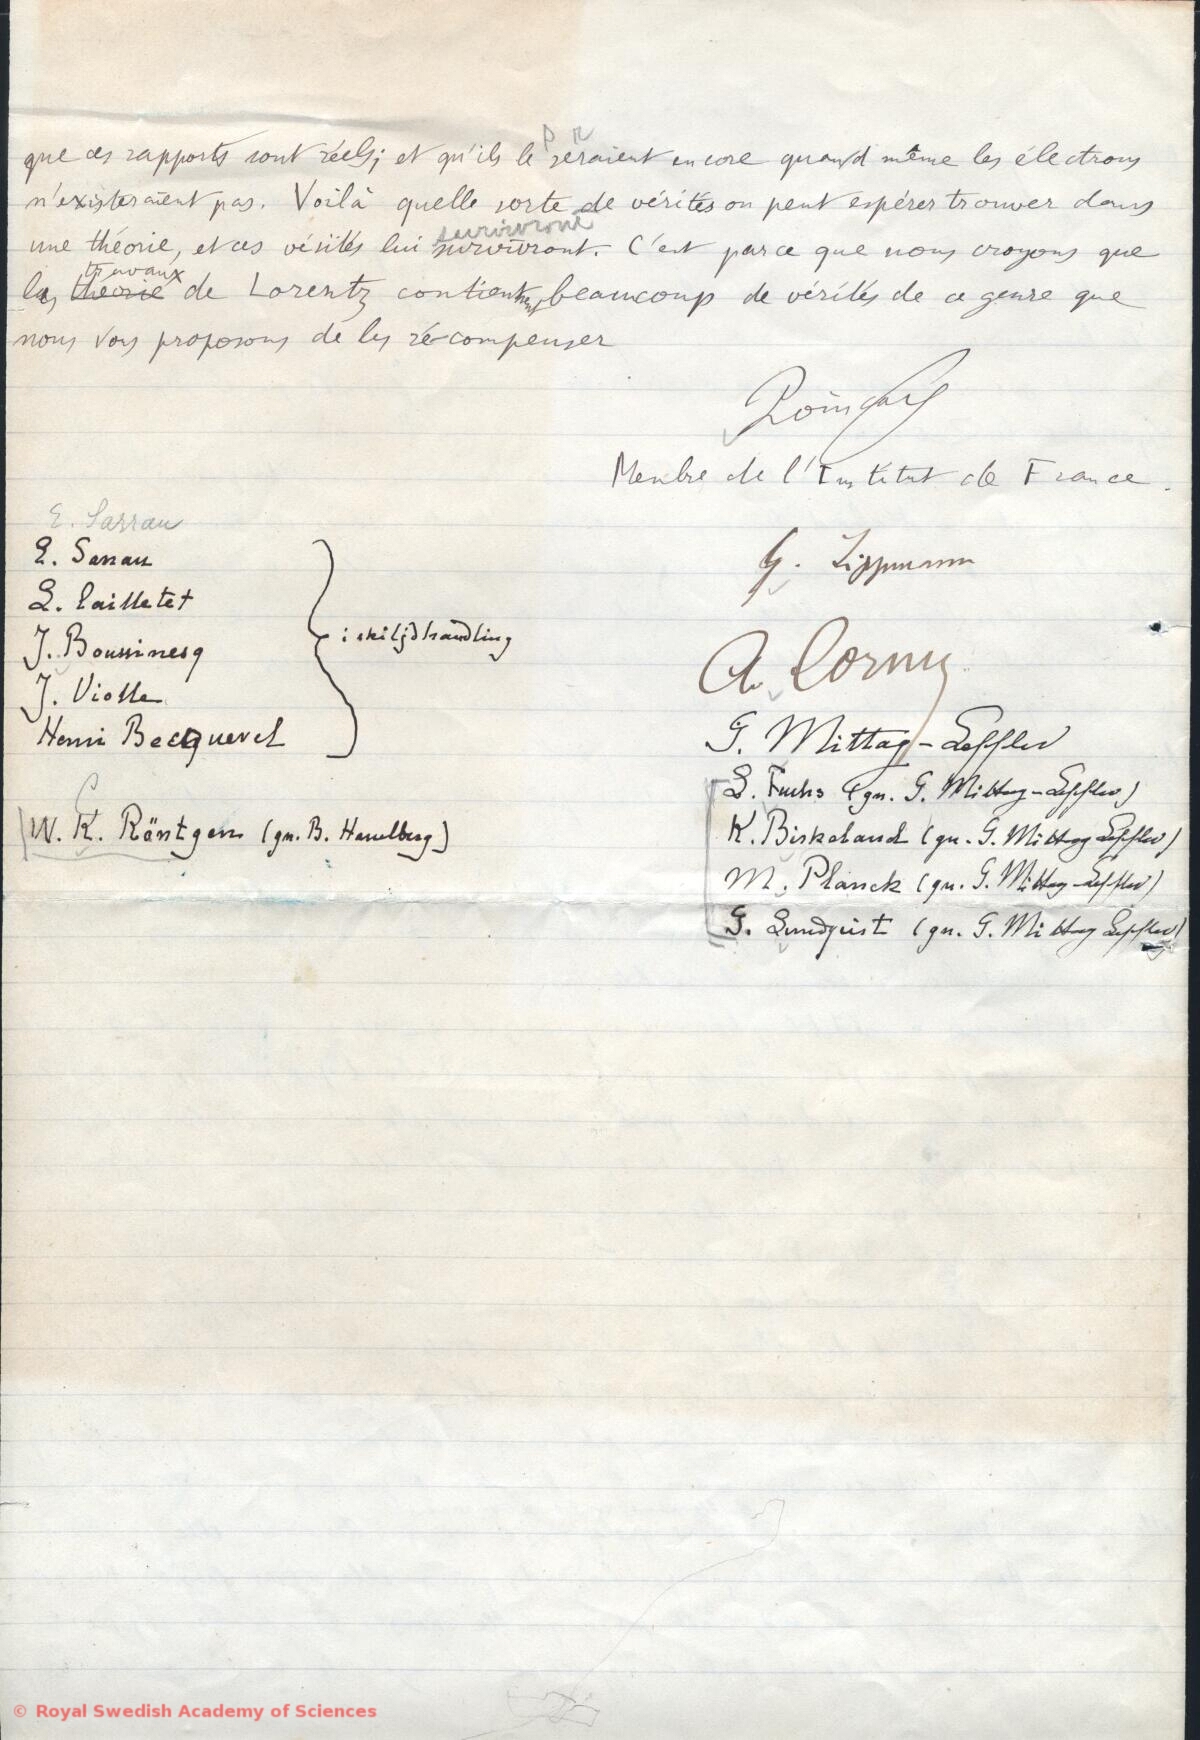 que ces rapports sont réels; et qu'ils le seraient encore quand même les électrons
n'existeraient pas. Voilà quelle sorte de vérités on peut espérer trouver dans
survivront
une théorie, et ces vérités lui survivront. C'est parce que nous croyons que
travaux
les théorie de Lorentz contiennent beaucoup de vérités de ce genre que
nous vous proposons de les récompenser
Poincaré
Membre de l'Institut de France.
E. Sarrau
E. Sarrau
L. Cailletet
J. Boussinesq
J. Violle
Henri Becquerel
i skiljd handling
W. K. Röntgen (gn. B. Hasselberg)
G. Lippmann
A. Cornu
G. Mittag-Leffler
L. Fuchs (gn. G. Mittag-Leffler)
K. Birkeland (gn. G. Mittag Leffler)
M. Planck (gn. G. Mittag-Leffler)
G. Lundquist (gn. G. Mittag Leffler)
© Royal Swedish Academy of Sciences